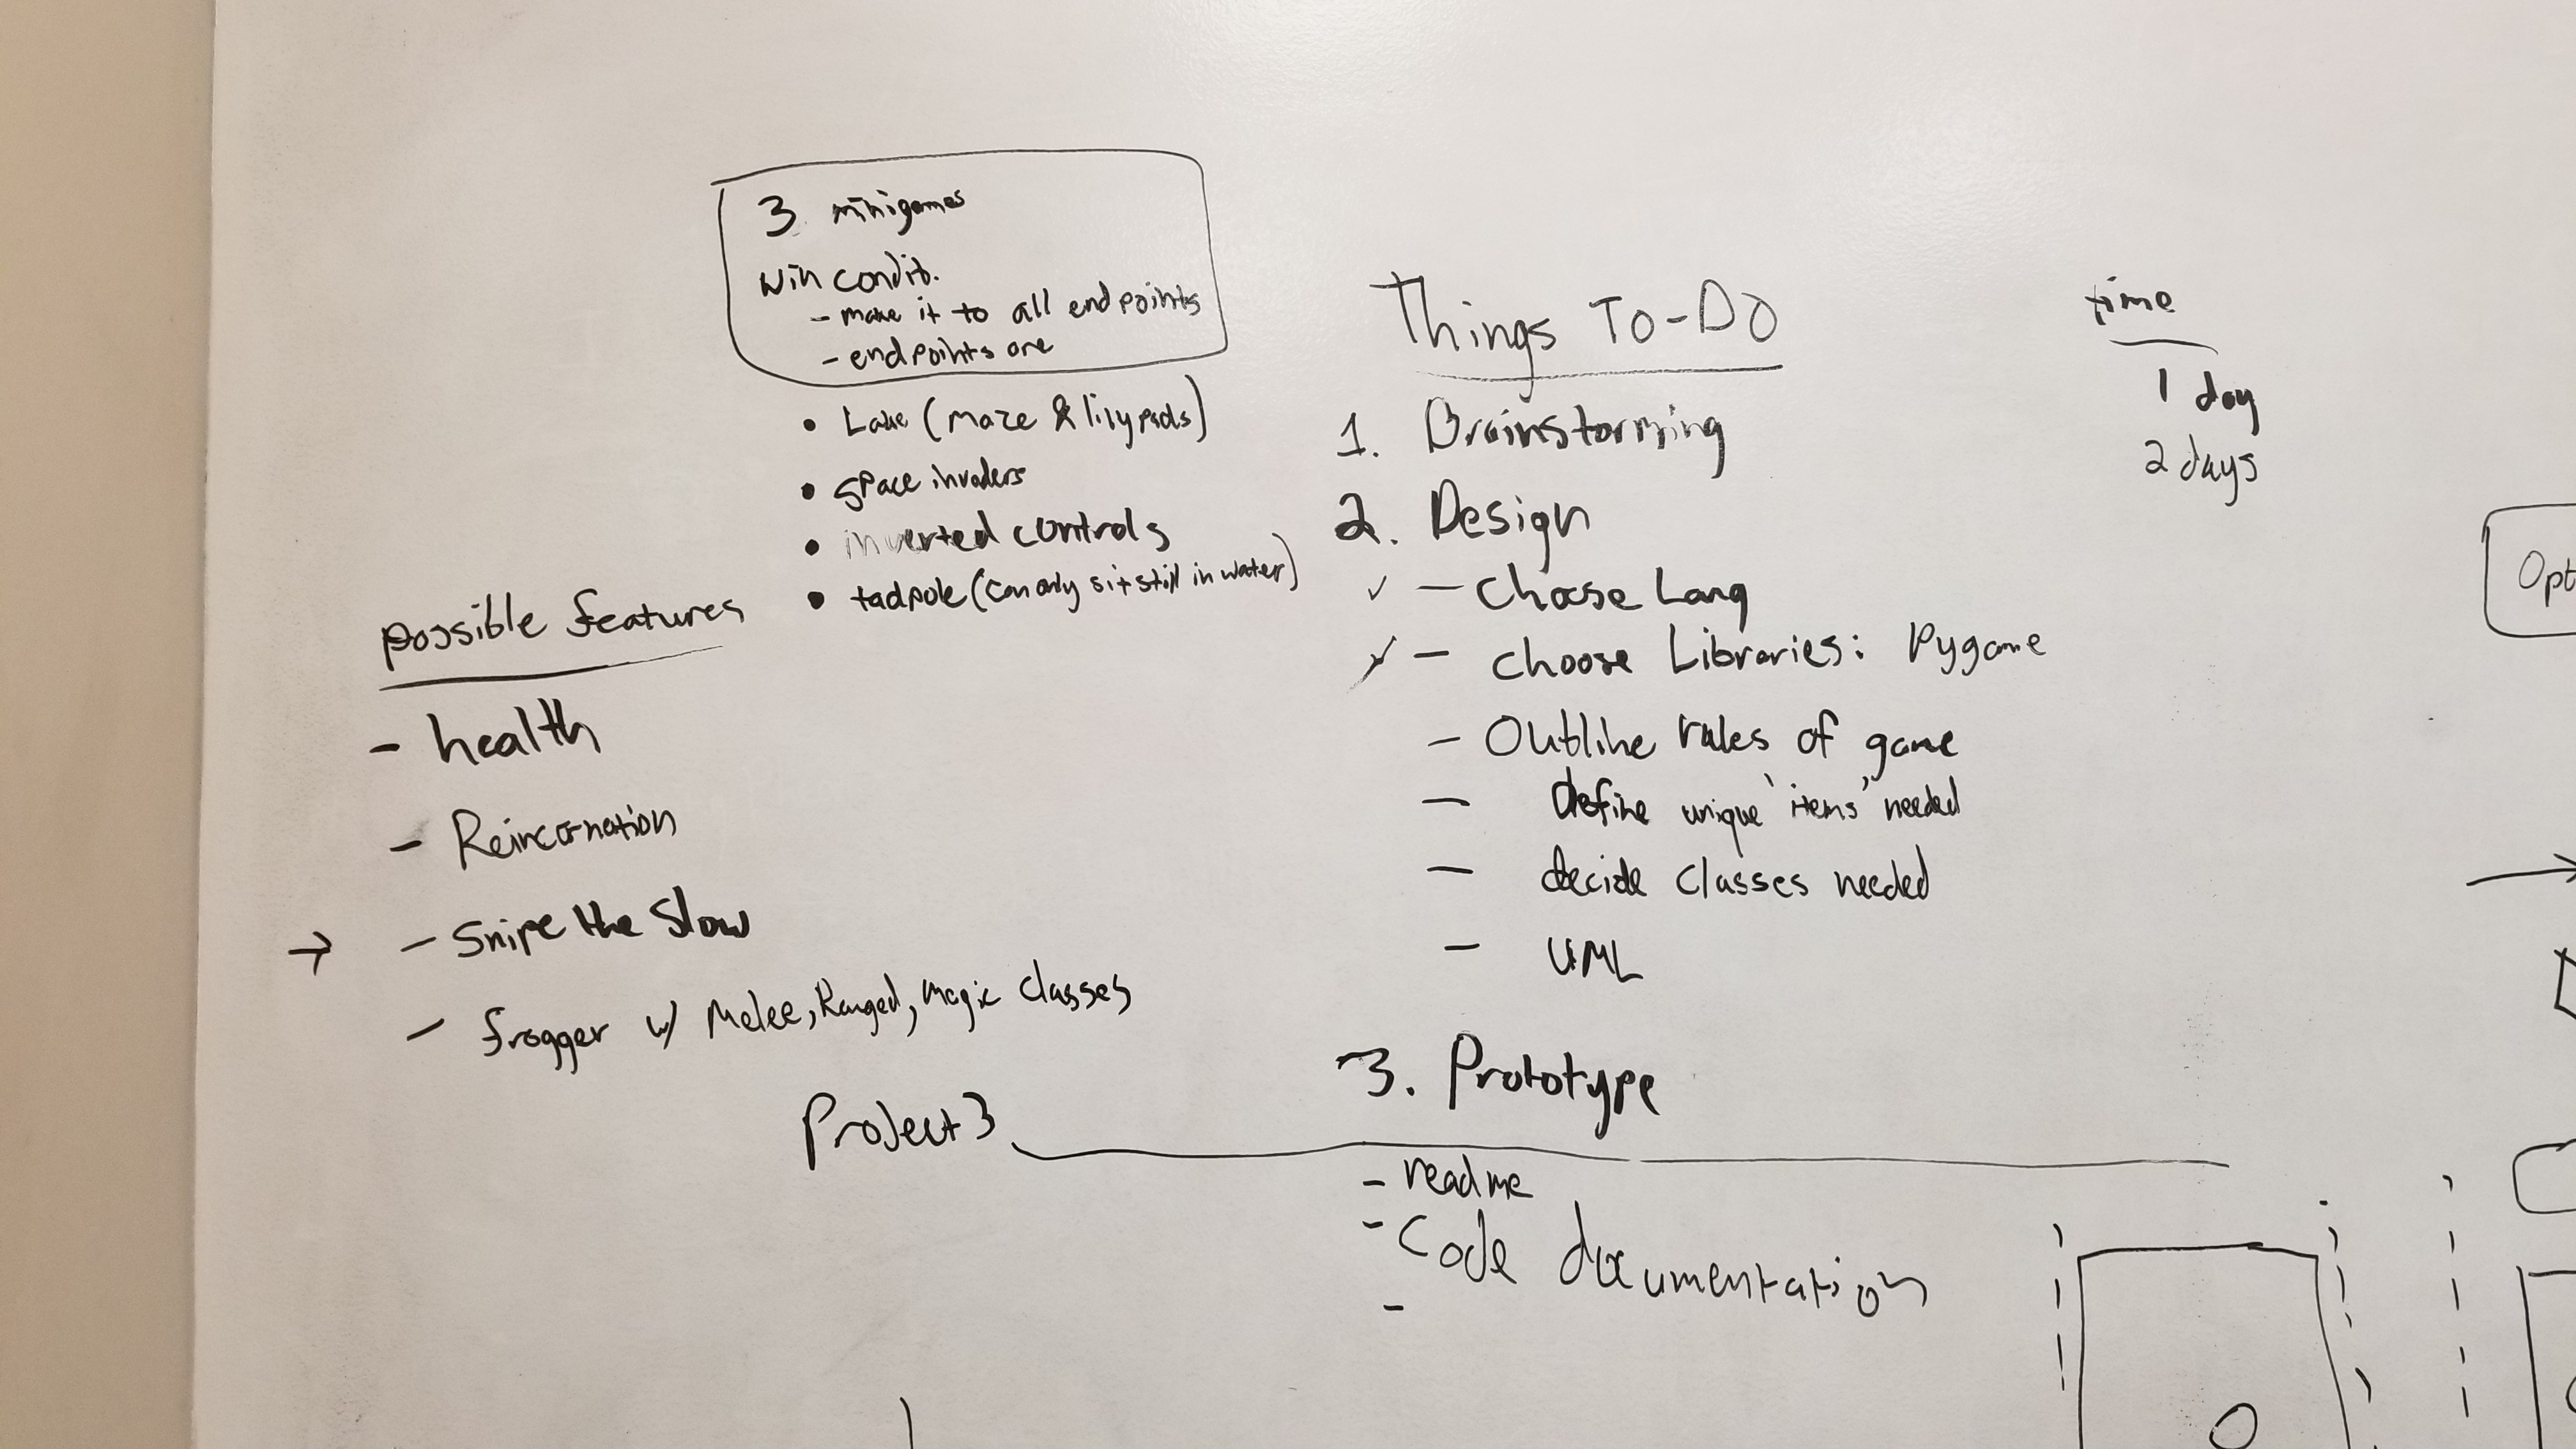 3 minigames
win condit.
- make it to all endpoints
- endpoints are
• Lake (maze & lilypads)
• space invaders
• inverted controls
• tadpole (can only sit still in water)
possible features
- health
- Reincarnation
→ - Snipe the Slow
- frogger w/ Melee, Ranged, Magic classes
Things To-Do
1. Brainstorming
2. Design
✓ - Choose Lang
✓ - choose Libraries: Pygame
- Outline rules of game
- define unique 'items' needed
- decide classes needed
- UML
3. Prototype
time
1 day
2 days
Project 3
- readme
- Code documentation
-